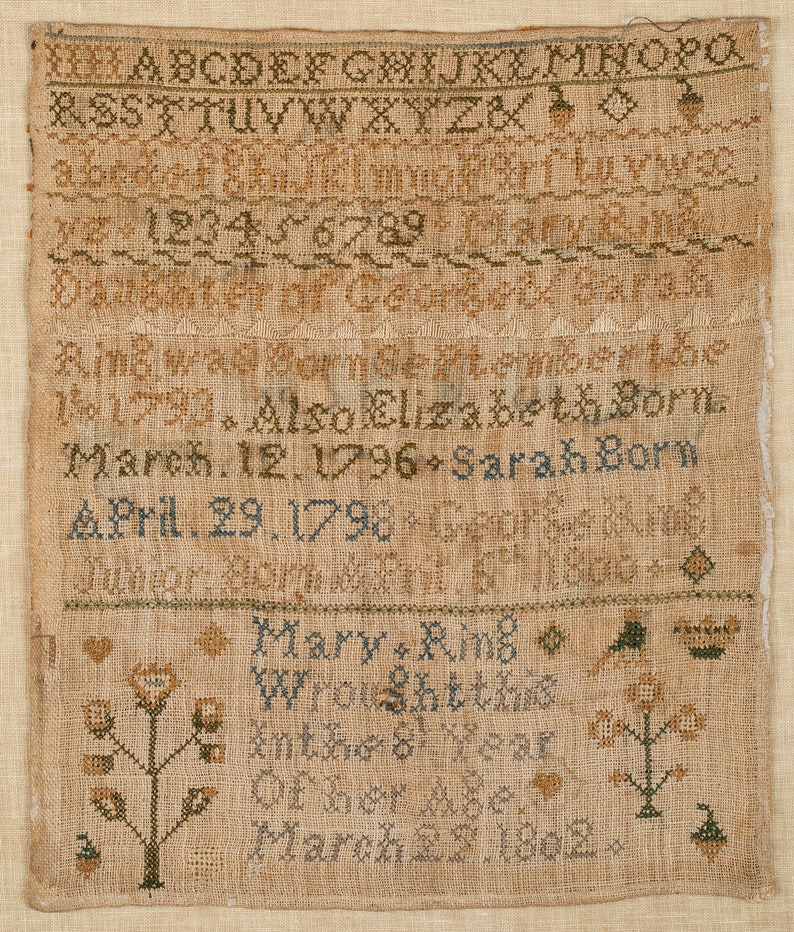 ABCDEFGHIJKLMNOPQ
RSSTTUVWXYZ&
abcdefghijklmnopqrstuvwx
yz 123456789 Mary Ring
Daughter of George & Sarah
Ring was Born September the
1st 1793 Also Elizabeth Born.
March. 12. 1796 Sarah Born
April. 29. 1798 George Ring
Junior Born April. 6th. 1800
Mary Ring
Wrought this
In the 8th Year
Of her Age.
March 22. 1802